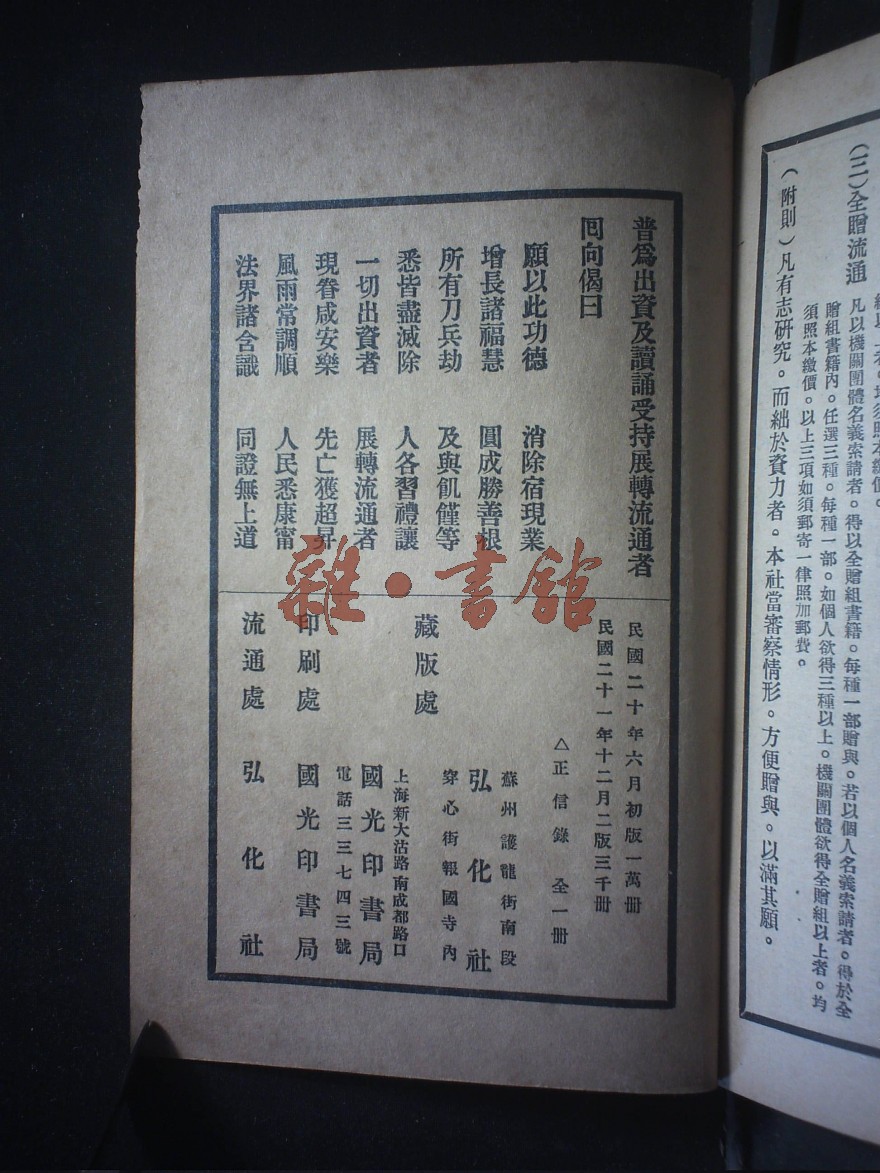 (三)全贈流通
凡以機關團體名義索請者。得以全贈組書籍。每種一部贈與。若以個人名義索請者。得於全
贈組書籍內。任選三種。每種一部。如個人欲得三種以上。機關團體欲得全贈組以上者。均
須照本繳價。以上三項如須郵寄一律照加郵費。
(附則)凡有志研究。而絀於資力者。本社當審察情形。方便贈與。以滿其願。
普爲出資及讀誦受持展轉流通者
囘向偈曰
願以此功德 消除宿現業
增長諸福慧 圓成勝善根
所有刀兵劫 及與飢饉等
悉皆盡滅除 人各習禮讓
一切出資者 展轉流通者
現眷咸安樂 先亡獲超昇
風雨常調順 人民悉康甯
法界諸含識 同證無上道
民國二十年六月初版一萬册
民國二十一年十二月二版三千册
△正信錄 全一册
藏版處
蘇州護龍街南段
弘化社
穿心街報國寺內
上海新大沽路南成都路口
國光印書局
電話三三七四三號
印刷處 國光印書局
流通處 弘化社
雜·書館